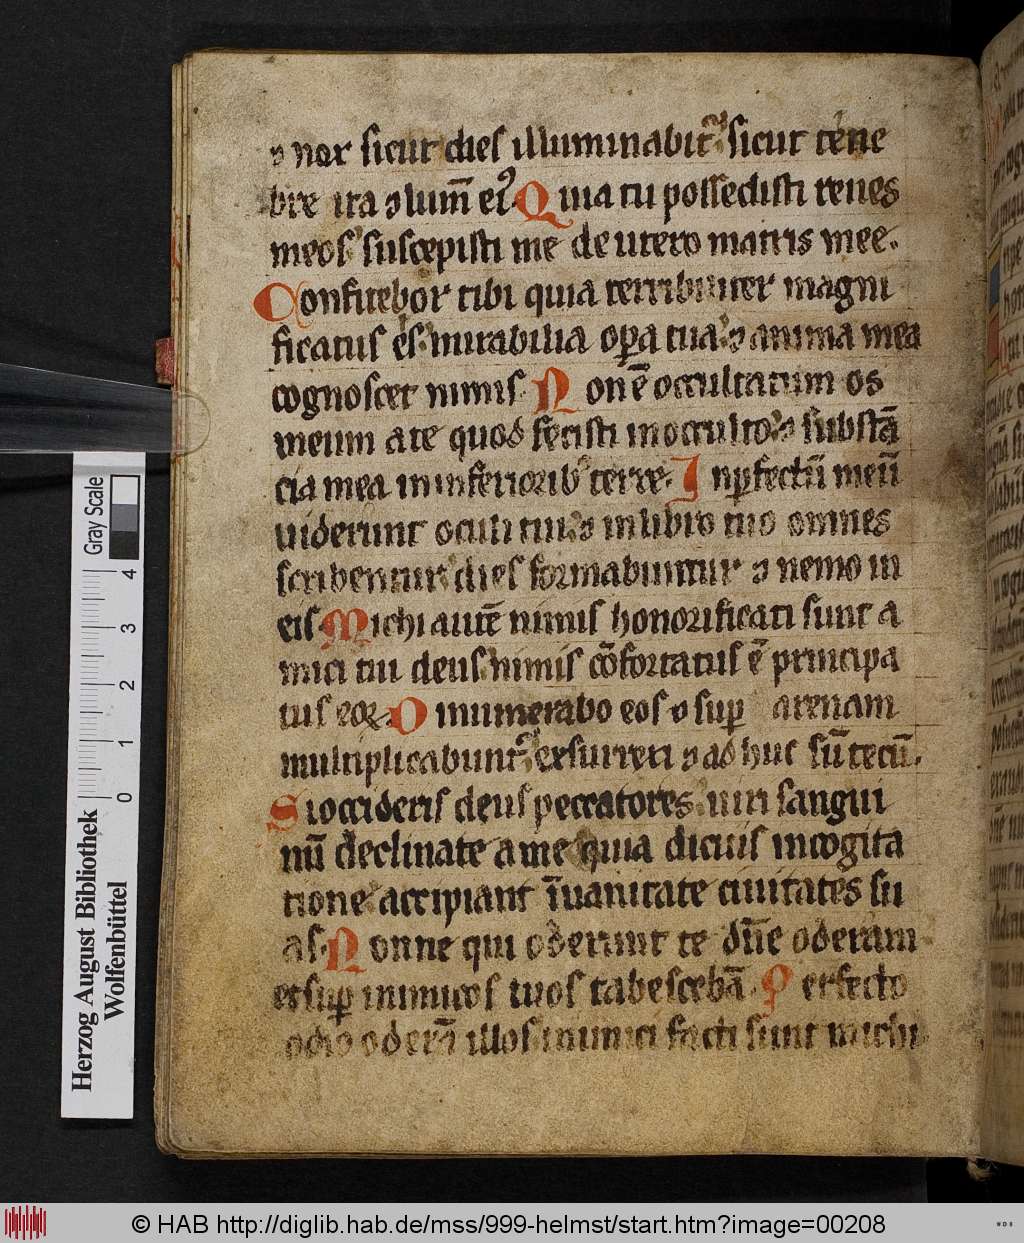 ⁊ nox sicut dies illuminabit᷑ sicut tene
bre ita ⁊ lum̄ eiꝰ Quia tu possedisti renes
meos suscepisti me de utero matris mee.
Confitebor tibi quia terribiliter magni
ficatus es mirabilia oꝑa tua ⁊ anima mea
cognoscet nimis Non ē occultatum os
meum a te quod fecisti in occulto ⁊ substā
cia mea in inferioribꝰ terre. Inꝑfectū meū
viderunt oculi tui ⁊ in libro tuo omnes
scribentur dies formabuntur ⁊ nemo in
eis Michi autē nimis honorificati sunt a
mici tui deus nimis cōfortatus ē principa
tus eoꝝ. Dinumerabo eos ⁊ suꝑ arenam
multiplicabunt᷑ exsurrexi ⁊ adhuc sū tecū.
Si occideris deus peccatores viri sangui
nū declinate a me quia dicitis in cogita
tione accipiant ī vanitate civitates su
as. Nonne qui oderunt te dn̄e oderam
et suꝑ inimicos tuos tabescebā Perfecto
odio oderā illos inimici facti sunt michi
Gray Scale
4
3
2
1
0
Herzog August Bibliothek
Wolfenbüttel
© HAB http://diglib.hab.de/mss/999-helmst/start.htm?image=00208
WDB